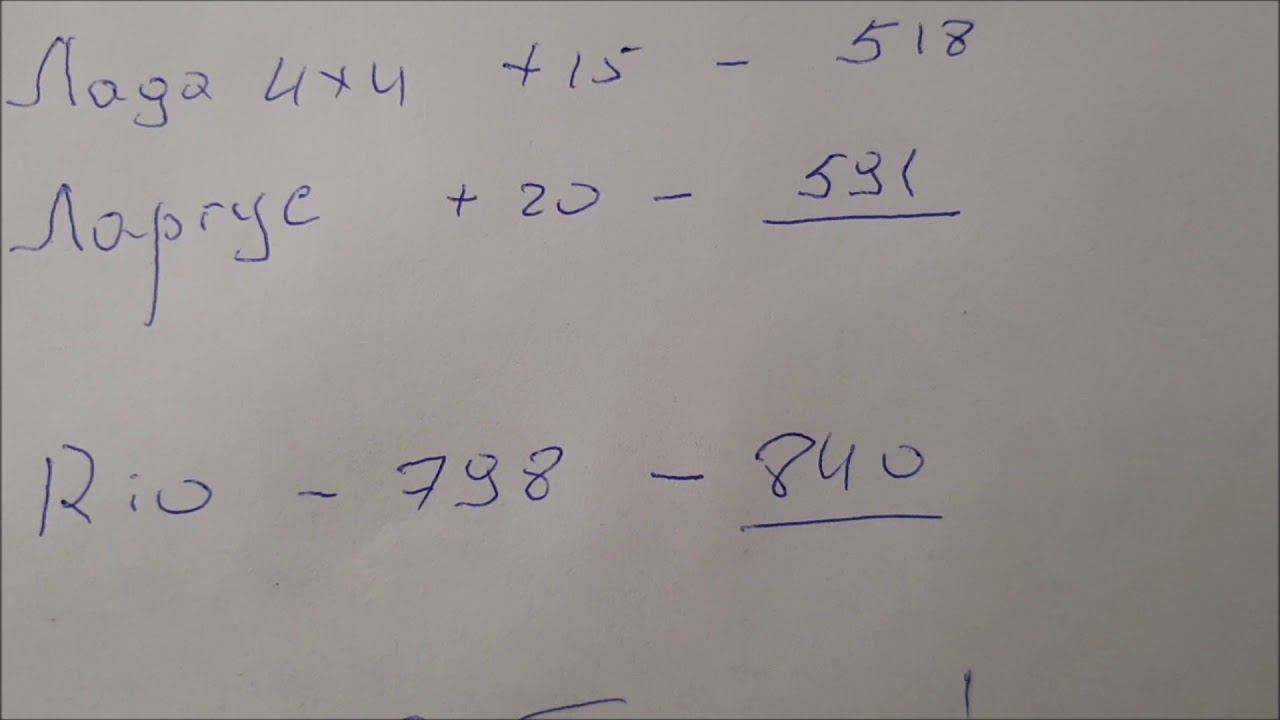 Лада 4x4 +15 - 518
Ларгус +20 - 591
Rio - 798 - 840